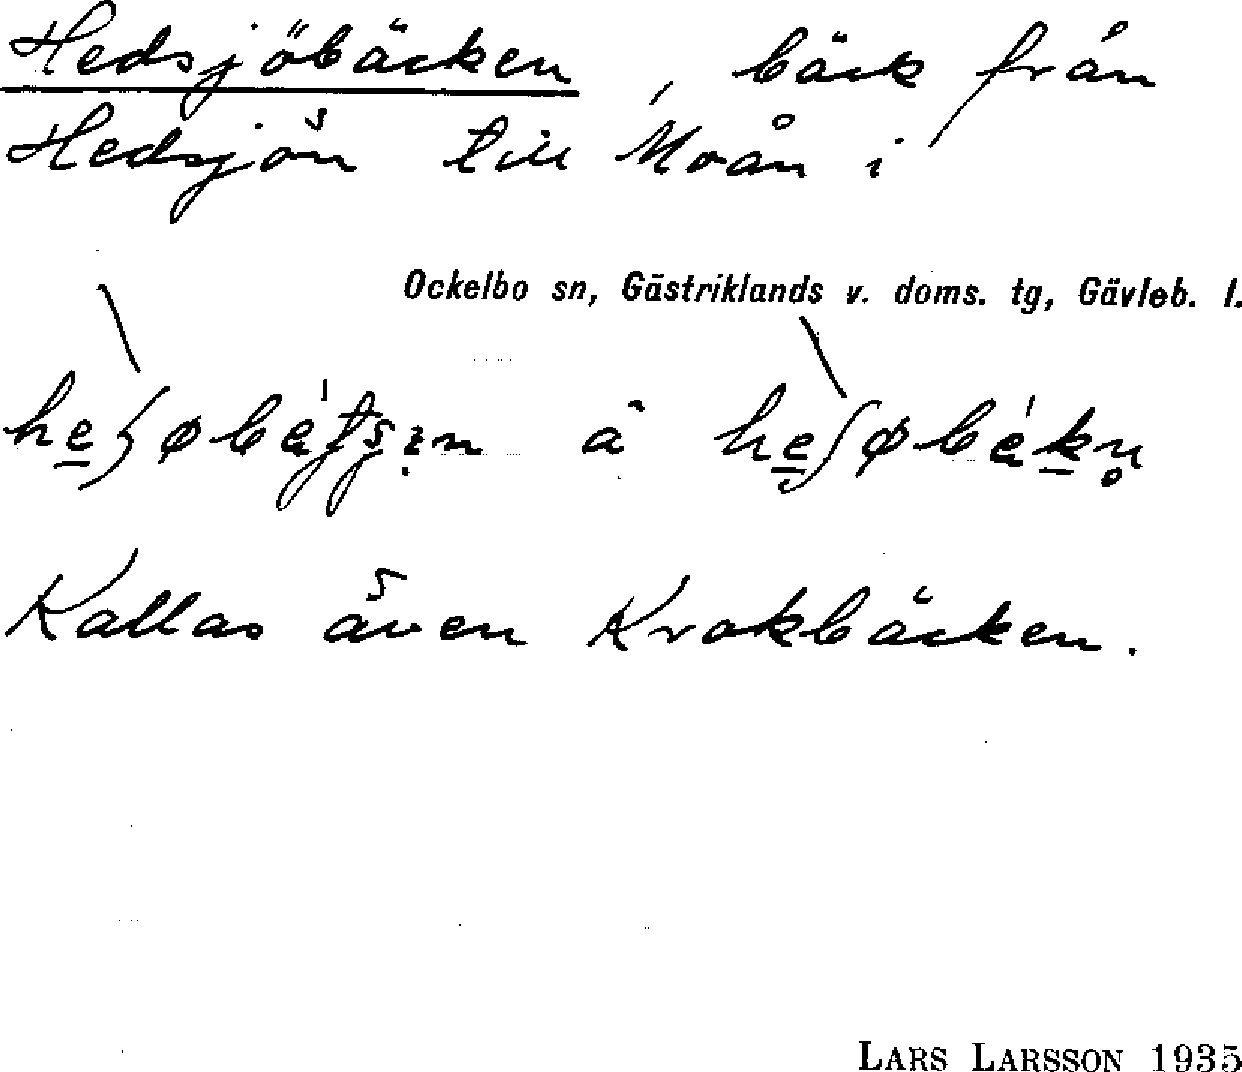 Hedsjöbäcken, bäck från
Hedsjön till Moån i
Ockelbo sn, Gästriklands v. doms. tg, Gävleb. l.
å
Kallas även Krokbäcken.
LARS LARSSON 1935